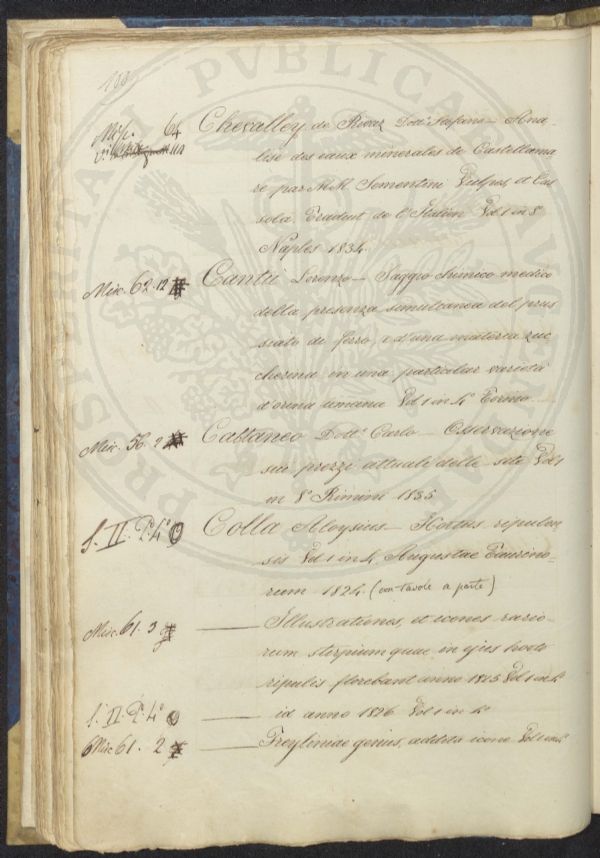 100
Misc. 64
Chevalley de Rivaz Dott. Stefano — Ana-
lise des eaux minerales de Castellama
re par MM. Sementini Vulpes et Cas
sola Traduit de l'Italien Vol 1 in 8°
Naples 1834.
Misc. 62. 12
Cantù Lorenzo — Saggio chimico medico
della presenza simultanea del prus
siato di ferro, e d'una materia zuc
cherina in una particolar varietà
d'orina umana Vol 1 in 4° Torino
Misc. 56. 2
Cattaneo Dott. Carlo — Osservazione
sui prezzi attuali delle sete Vol 1
in 8° Rimini 1835
f. II. P. 4°
Colla Aloysius — Hortus ripulen
sis Vol 1 in 4° Augustae Taurino-
rum 1824. (con tavole a parte)
Misc. 61. 3
Illustrationes, et icones rario-
rum stirpium quae in ejus horto
ripulis florebant anno 1825 Vol 1 in 4°
f. II. P. 4°
id anno 1826 Vol 1 in 4°
Misc 61. 2
Treyliniae genus, addita icone Vol 1 in 4°
PVBLICA
PROSPERITATI